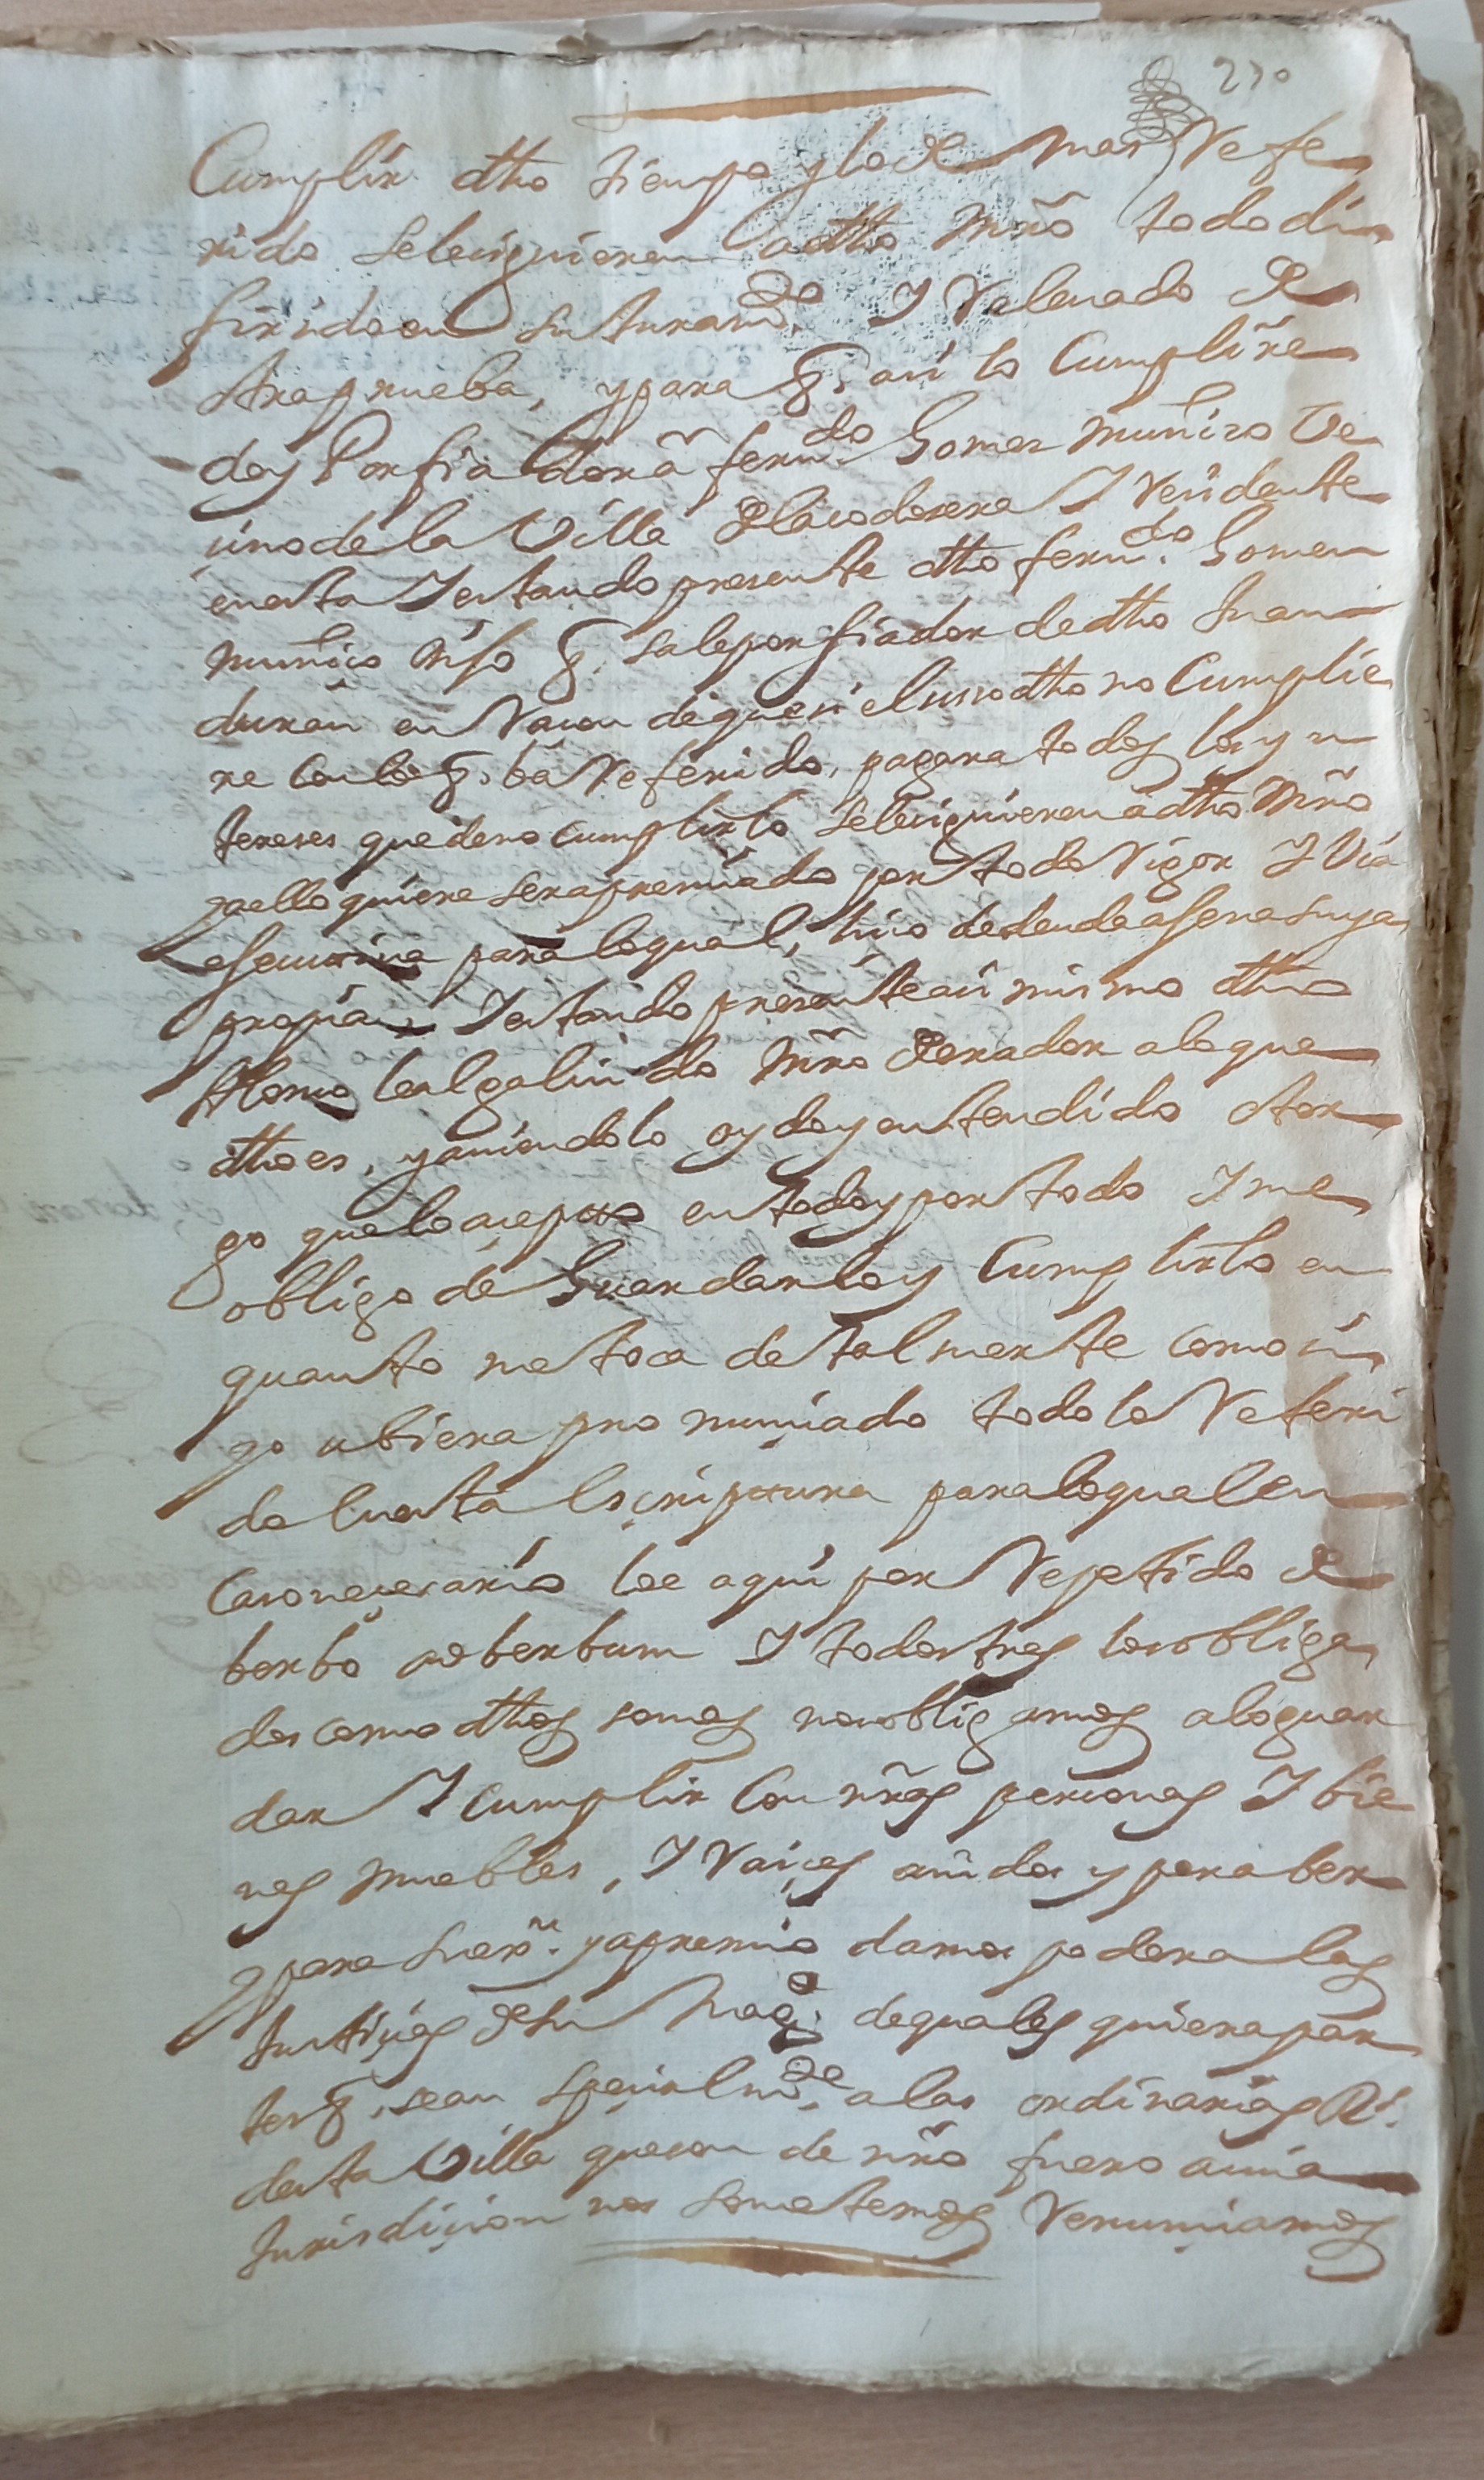 270
Cumplir dho tiempo y lo de mas Refe
rido se le siguieren a dho Mro todo di
firido en su Juram.do I Relevado de
otra prueba, y para q. asi lo Cumplire
doy Por fiador a fern.do Gomes muñiso Ve
sino de la Villa I Residente
en esta I estando presente dho fern.do Gomes
muñiso Dijo q. sale por fiador de dho Juan
duran en Rason de que si el suso dho no Cumplie
re Con lo q. ba Referido, pagara todos los yn
tereses que de no cumplirlo se le siguieren a dho Mro
y a ello quiere ser apremiado por todo Rigor I Via
esecutiva para lo qual, hiso de deuda agena suya
propia I estando presente asi mismo dho
Alonso leal galindo Mro a lo que
dho es, y aviendolo oydo y entendido otor
go que lo acepto en todo y por todo I me
obligo de Guardarlo y Cumplirlo en
quanto me toca de tal suerte como si
yo ubiera pronunciado todo lo Referi
do en esta Escriptura para lo qual en
Caso nesesario lo e aqui por Repetido de
berbo ad berbum I todos tres los obliga
dos como dhos somos nos obligamos a lo guar
dar I cumplir Con nras personas I bie
nes muebles, I Raices avidos y por aber
y para su ex.n y apremio damos poder a las
Justicias de su Mag.e de quales quiera par
tes q. sean Specialm.te a las ordinarias D.
desta Villa que son de nro fuero a cuia
Jurisdicion nos sometemos Renunciamos